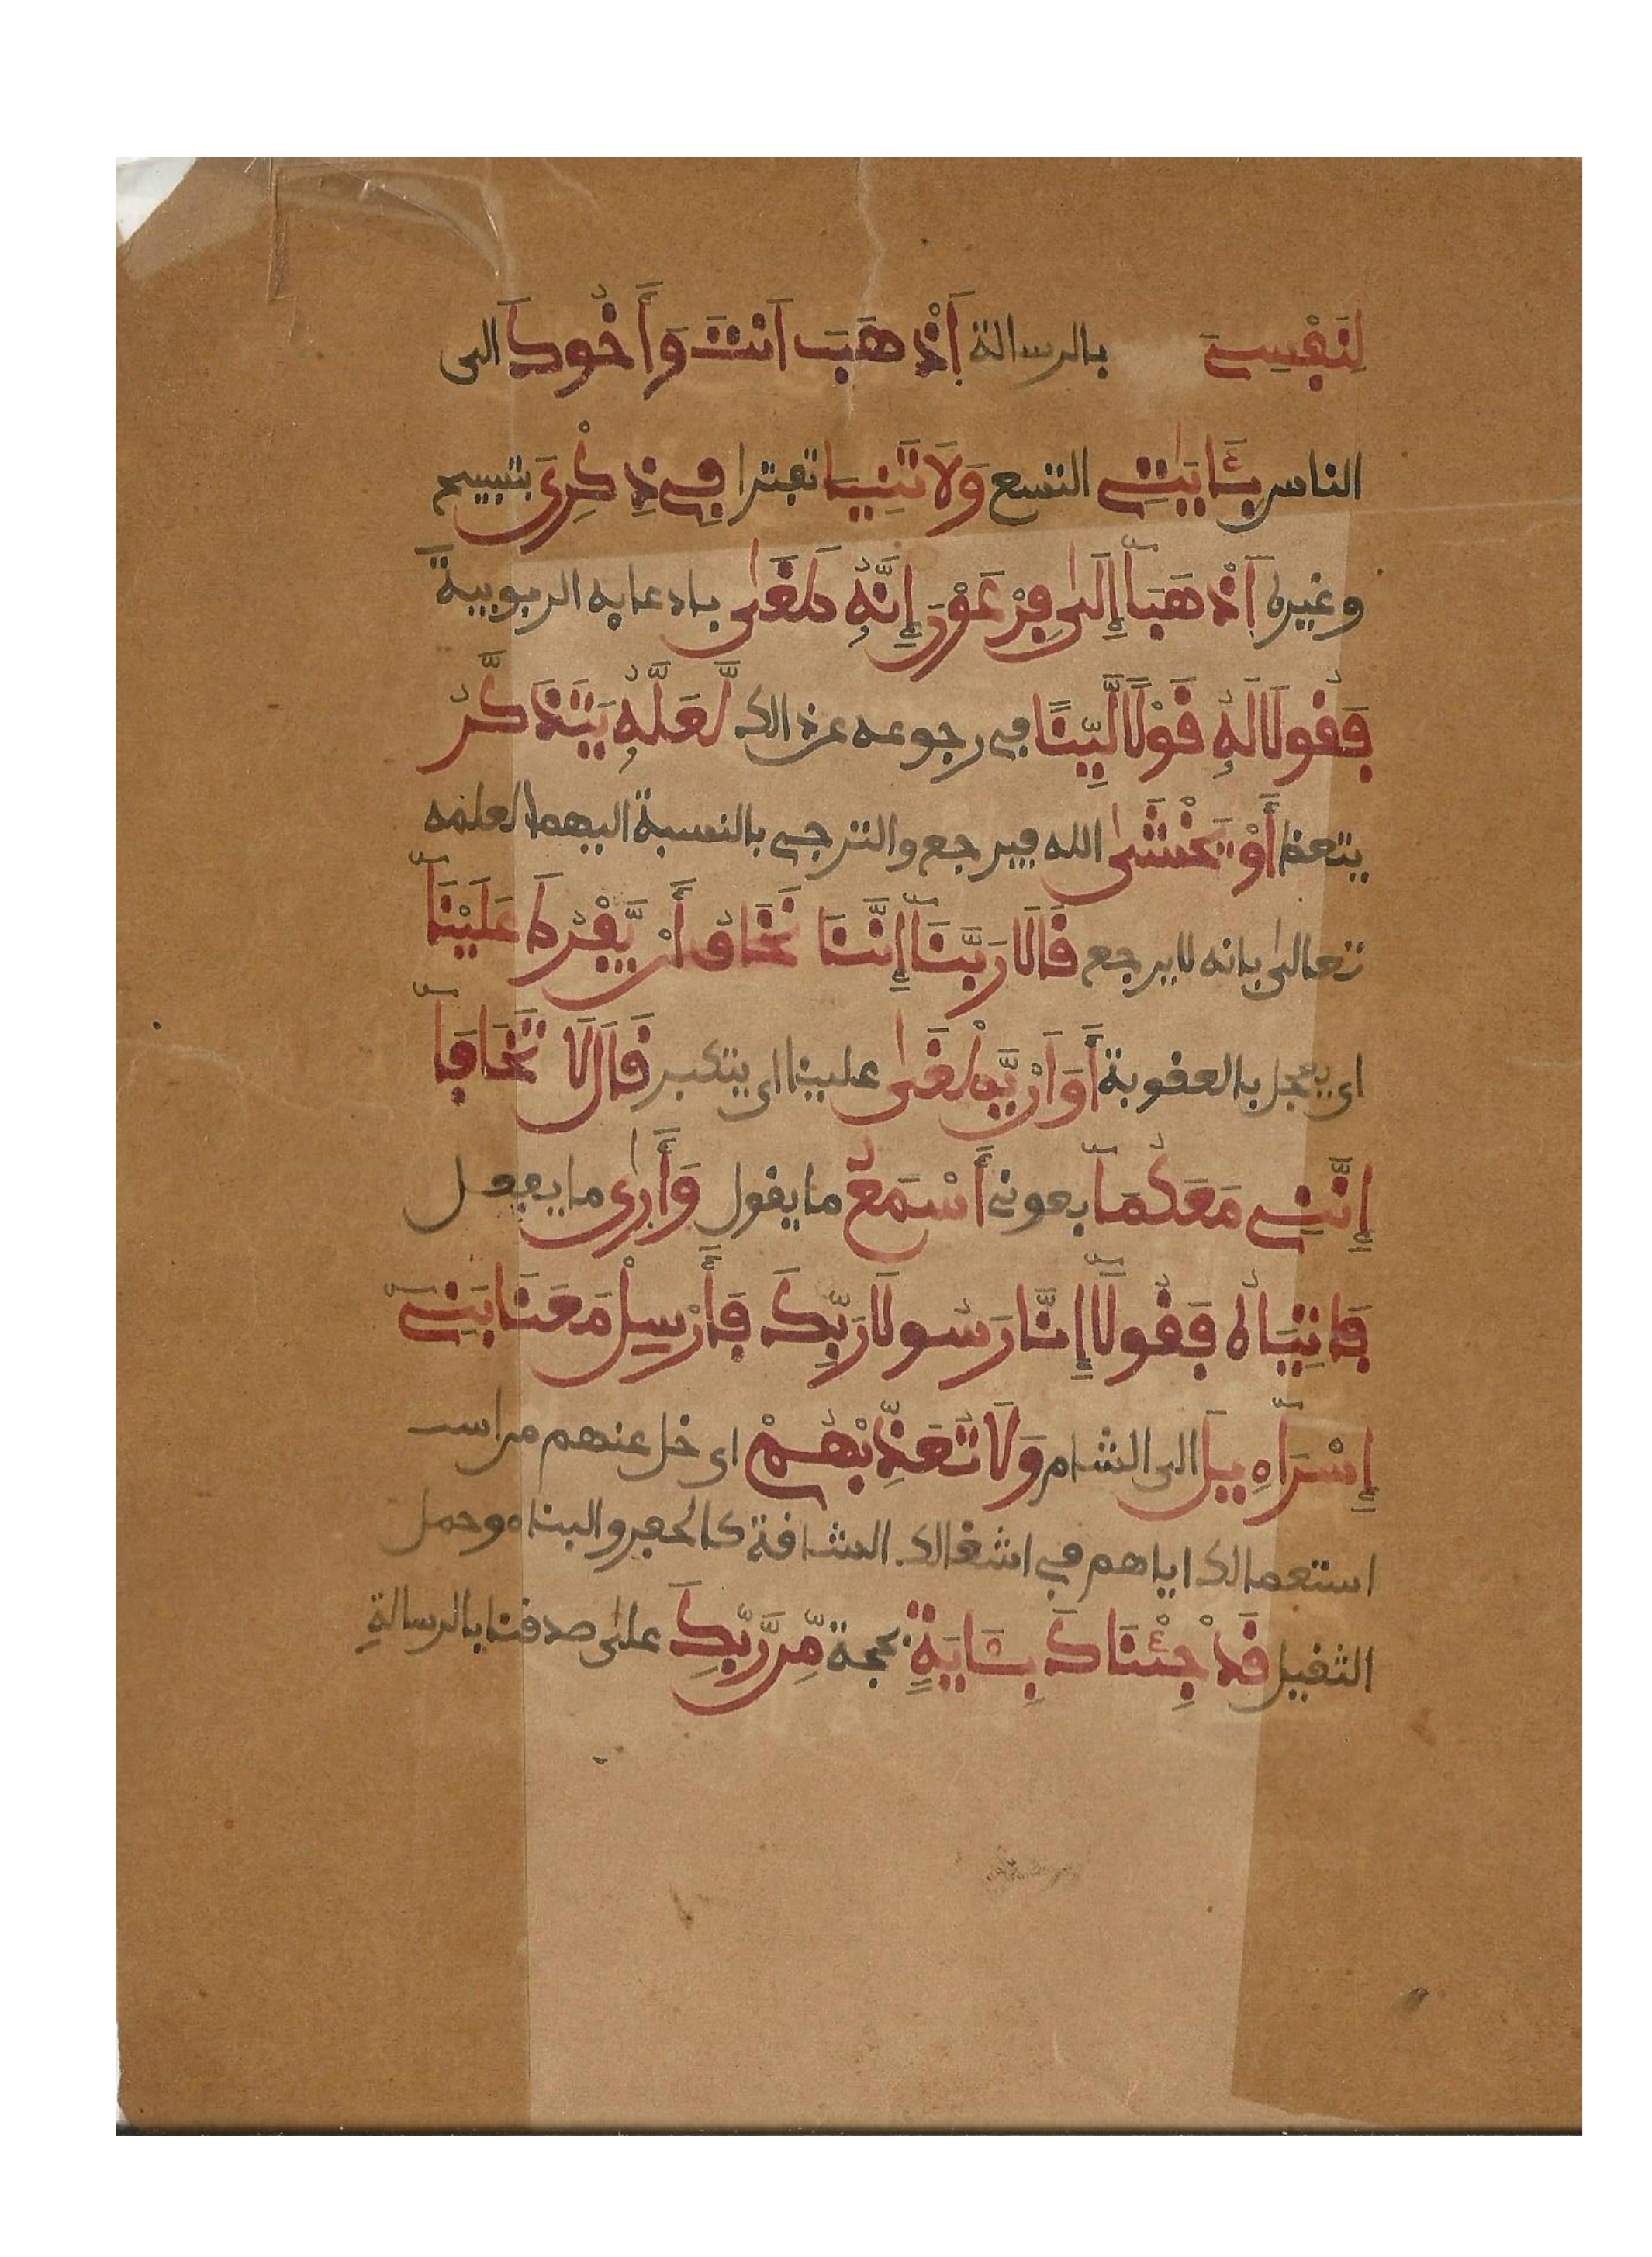 لِنَفْسِيَ بالرسالة اَذْهَبَ اَنتَ وَأَخُوكَ الى
الناس بِـَٔايَٰتِے التسع وَلَا تَنِيَا تفترا فِے ذِكْرِيَ بتسبيح
وغيره اَذْهَبَآ إِلَىٰ فِرْعَوْنَ إِنَّهُۥ طَغَىٰ بادعايه الربوبية
فَقُولَا لَهُۥ قَوْلٗا لَّيِّنٗا في رجوعه عن ذالك لَّعَلَّهُۥ يَتَذَكَّرُ
يتعظ أَوْ يَخْشَىٰ الله فيرجع والترجي بالنسبة اليهما لعلمه
تعالىٰ بانه لا يرجع قَالَا رَبَّنَآ إِنَّنَا نَخَافُ أَنْ يَّفْرُطَ عَلَيْنَآ
اي يعجل بالعقوبة أَوَ اَنْ يَّطْغَىٰ علينا اى يتكبر قَالَ لَا تَخَافَآ
إِنَّنِے مَعَكُمَآ بعوني أَسْمَعُ ما يقول وَأَرَىٰ ما يفعل
فَاتِيَاهُ فَقُولَآ إِنَّا رَسُولَا رَبِّكَ فَأَرْسِلْ مَعَنَا بَنِےٓ
إِسْرَآءِيلَ الى الشام وَلَا تُعَذِّبْهُمْ اى خل عنهم من است
استعمالك اياهم في اشغالك الشاقة كالحفر والبناء وحمل
الثقيل قَدْ جِئْنَاكَ بِـَٔايَةٖ بحجة مِّن رَّبِّكَ علىٰ صدقنا بالرسالةِ